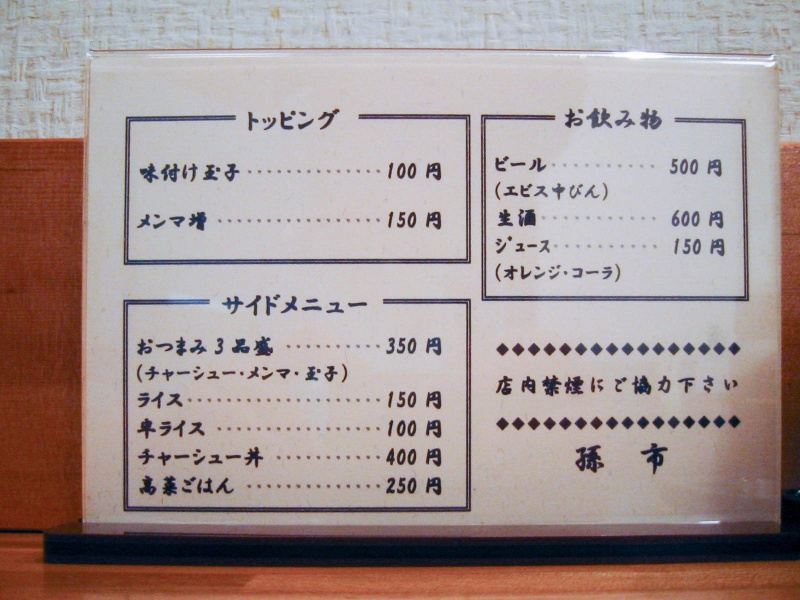 トッピング
味付け玉子 ・・・・・・・・・・・・・・ 100 円
メンマ増 ・・・・・・・・・・・・・・・・ 150 円
サイドメニュー
おつまみ 3 品盛 ・・・・・・・・・・ 350 円
(チャーシュー・メンマ・玉子)
ライス・・・・・・・・・・・・・・・・・・・ 150 円
半ライス ・・・・・・・・・・・・・・・・ 100 円
チャーシュー丼 ・・・・・・・・・・・ 400 円
高菜ごはん ・・・・・・・・・・・・・・ 250 円
お飲み物
ビール・・・・・・・・・・・ 500 円
(エビス中びん)
生酒・・・・・・・・・・・・ 600 円
ジュース・・・・・・・・・・ 150 円
(オレンジ・コーラ)
◆◆◆◆◆◆◆◆◆◆◆◆◆◆◆◆
店内禁煙にご協力下さい
◆◆◆◆◆◆◆◆◆◆◆◆◆◆◆◆
孫 市